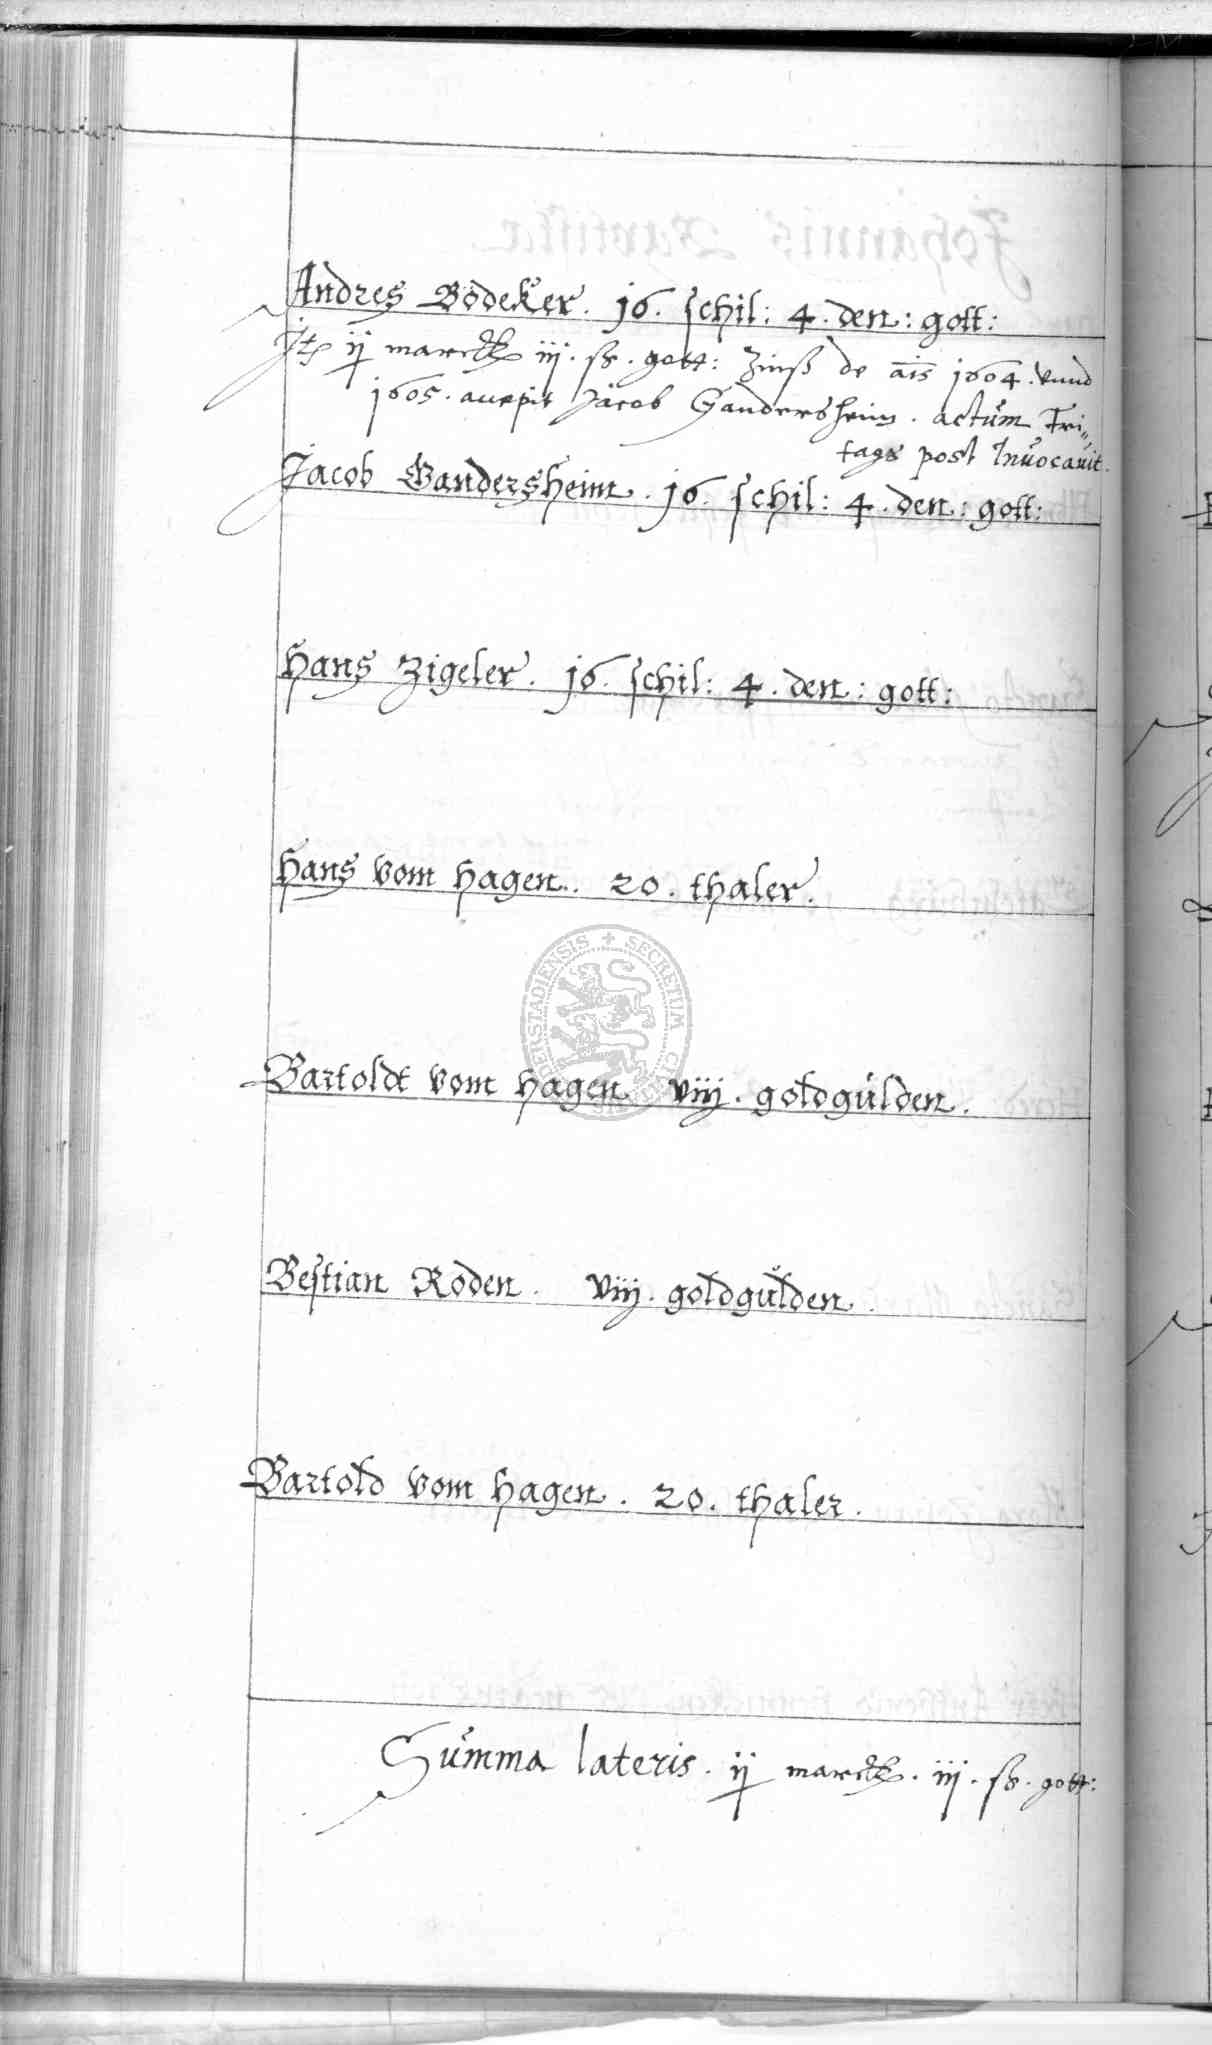 Andres Bödeker. 16. schil: 4. den: gott:
Jtē ij marck iij. ß. gott: Zinß de āis 1604. vnnd
1605. accepit Jacob Gandersheim. actum Fri„
tags post Inuocauit.
Jacob Gandersheim. 16. schil: 4. den: gott:
Hans Zigeler. 16. schil: 4. den: gott:
Hans vom Hagen. 20. thaler.
SECRETUM
Bartoldt vom Hagen viij. goldgulden.
Bestian Roden. viij. goldgulden.
Bartold vom Hagen. 20. thaler.
Summa lateris. ij marck. iij. ß. gott: